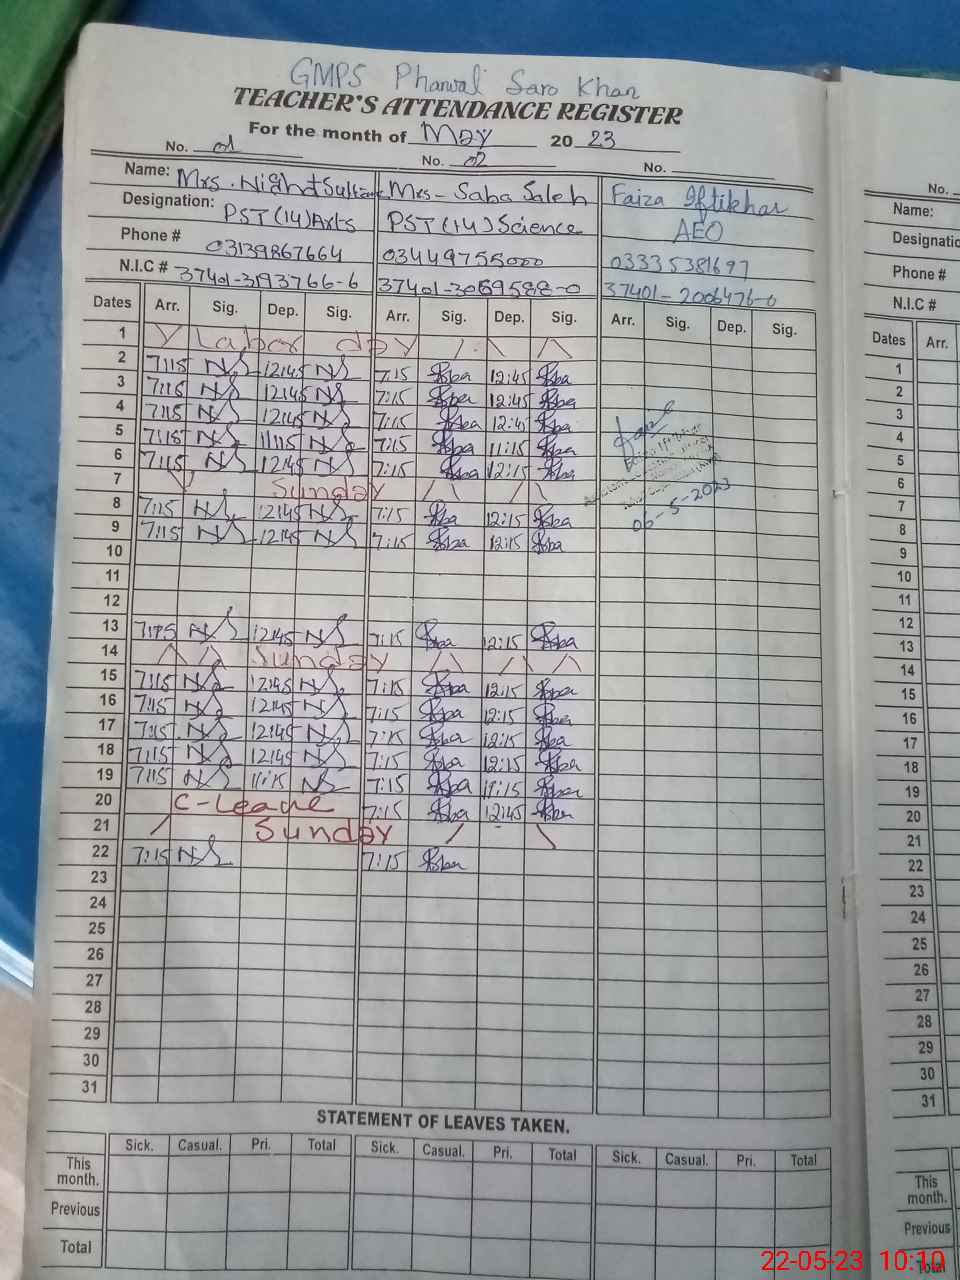 GMPS Pharwal Saro Khan
TEACHER'S ATTENDANCE REGISTER
For the month of May 2023
No. 01 No. 02 No.
Name: Mrs. Nighat Sultana Mrs - Saba Saleh Faiza Iftikhar
Designation: PST (14) Arts PST (14) Science AEO
Phone # 03139867664 03449755000 03335381697
N.I.C # 37401-3193766-6 37401-3069588-0 37401-2006476-0
Dates Arr. Sig. Dep. Sig. Arr. Sig. Dep. Sig. Arr. Sig. Dep. Sig.
1 Labor day
2 7:15 NS 12:45 NS 7:15 Saba 12:45 Saba
3 7:15 NS 12:45 NS 7:15 Saba 12:45 Saba
4 7:15 NS 12:45 NS 7:15 Saba 12:45 Saba
5 7:15 NS 11:15 NS 7:15 Saba 11:15 Saba
6 7:15 NS 12:45 NS 7:15 Saba 12:15 Saba
7 Sunday
8 7:15 NS 12:45 NS 7:15 Saba 12:15 Saba
9 7:15 NS 12:45 NS 7:15 Saba 12:15 Saba
06-5-2023
10
11
12
13 7:15 NS 12:45 NS 7:15 Saba 12:15 Saba
14 Sunday
15 7:15 NS 12:45 NS 7:15 Saba 12:15 Saba
16 7:15 NS 12:45 NS 7:15 Saba 12:15 Saba
17 7:15 NS 12:45 NS 7:15 Saba 12:15 Saba
18 7:15 NS 12:45 NS 7:15 Saba 12:15 Saba
19 7:15 NS 11:15 NS 7:15 Saba 11:15 Saba
20 C-Leave 7:15 Saba 12:45 Saba
21 Sunday
22 7:15 NS 7:15 Saba
23
24
25
26
27
28
29
30
31
STATEMENT OF LEAVES TAKEN.
Sick. Casual. Pri. Total Sick. Casual. Pri. Total Sick. Casual. Pri. Total
This month.
Previous
Total
No.
Name:
Designatio
Phone #
N.I.C #
Dates Arr.
1
2
3
4
5
6
7
8
9
10
11
12
13
14
15
16
17
18
19
20
21
22
23
24
25
26
27
28
29
30
31
This month.
Previous
Total
22-05-23 10:10